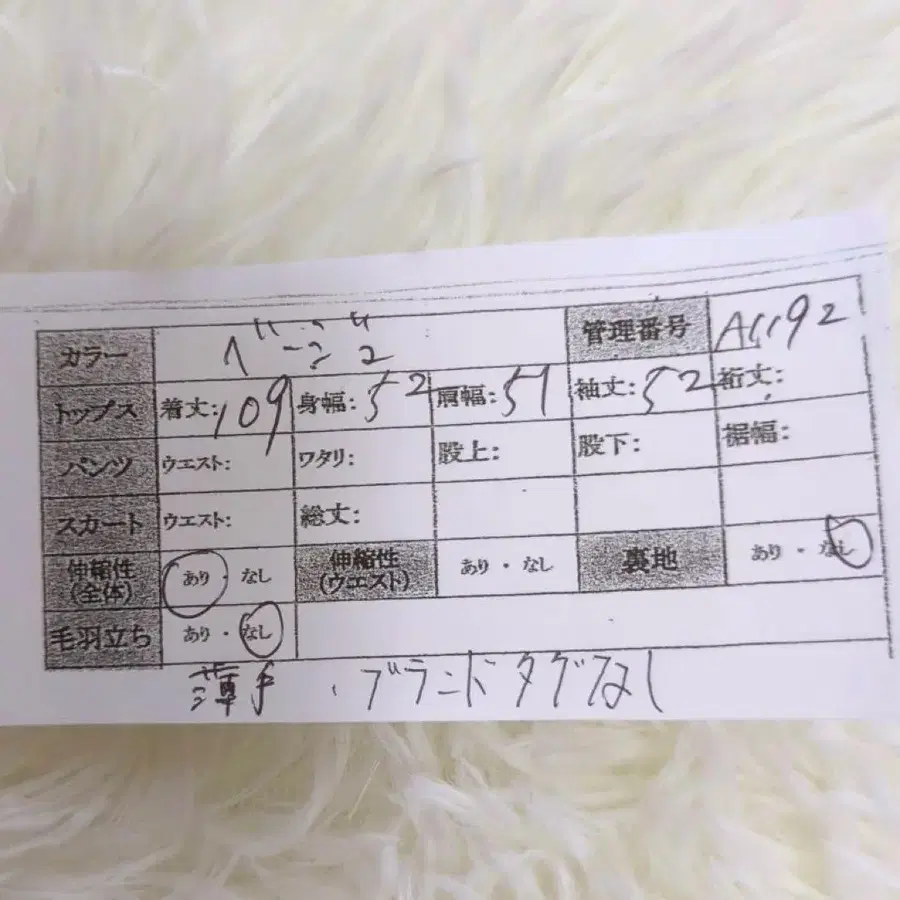 カラー ベージュ 管理番号
トップス 着丈:109 身幅:52 肩幅: 袖丈:52 裄丈:
パンツ ウエスト: ワタリ: 股上: 股下: 裾幅:
スカート ウエスト: 総丈:
伸縮性 あり・なし 伸縮性 あり・なし 裏地 あり・なし
(全体) (ウエスト)
毛羽立ち あり・なし
薄手 ・ブランドタグなし